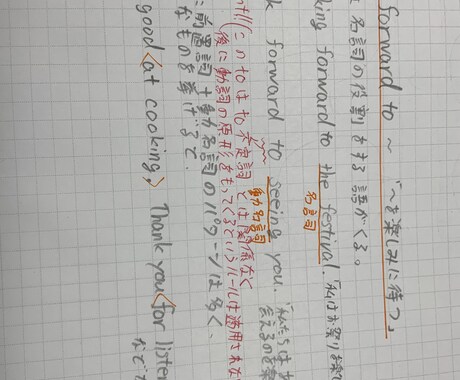 forward to ~ 「~を楽しみに待つ」
名詞の役割をする語がくる。
king forward to the festival.
名詞
forward to seeing you.
動名詞
このtoはto不定詞とは関係なく
後に動詞の原形をもってくるというルールは適用されな
前置詞+動名詞のパターンは多く、
なものを挙げると、
good <at cooking,> Thank you <for listen
などで